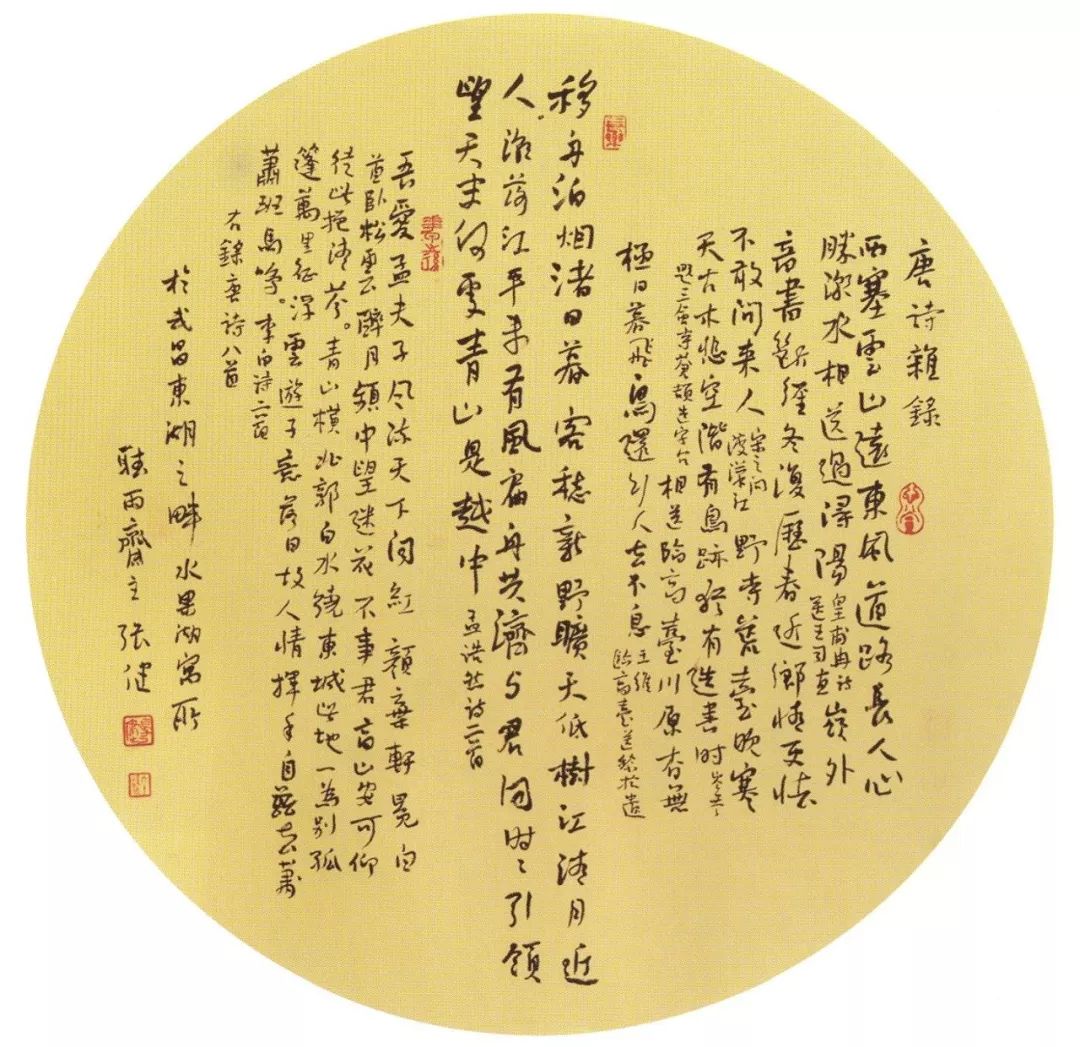 唐詩雜錄
西塞雲山遠東風道路長人心
勝潮水相送過潯陽 皇甫冉詩 送王司直 嶺外
音書斷經冬復歷春近鄉情更怯
不敢問来人 宋之問 渡漢江 野寺荒臺晚寒
天古木悲空階有鳥跡猶有造書時 岑參
題三會寺蒼頡造字台 相送臨高臺川原杳無
極日暮飛鳥還行人去不息 王維 臨高臺送黎拾遺
移舟泊烟渚日暮客愁新野曠天低樹江清月近
人潮落江平未有風扁舟共濟与君同時々引領
望天末何處青山是越中 孟浩然詩二首
吾愛孟夫子風流天下聞紅顏棄軒冕白
首卧松雲醉月頻中聖迷花不事君高山安可仰
徒此挹清芬。青山橫北郭白水繞東城此地一為别孤
蓬萬里征浮雲遊子意落日故人情揮手自茲去蕭
蕭班馬鳴。李白詩二首
右錄唐詩八首
於武昌東湖之畔水果湖寓所
聽雨齋主張健